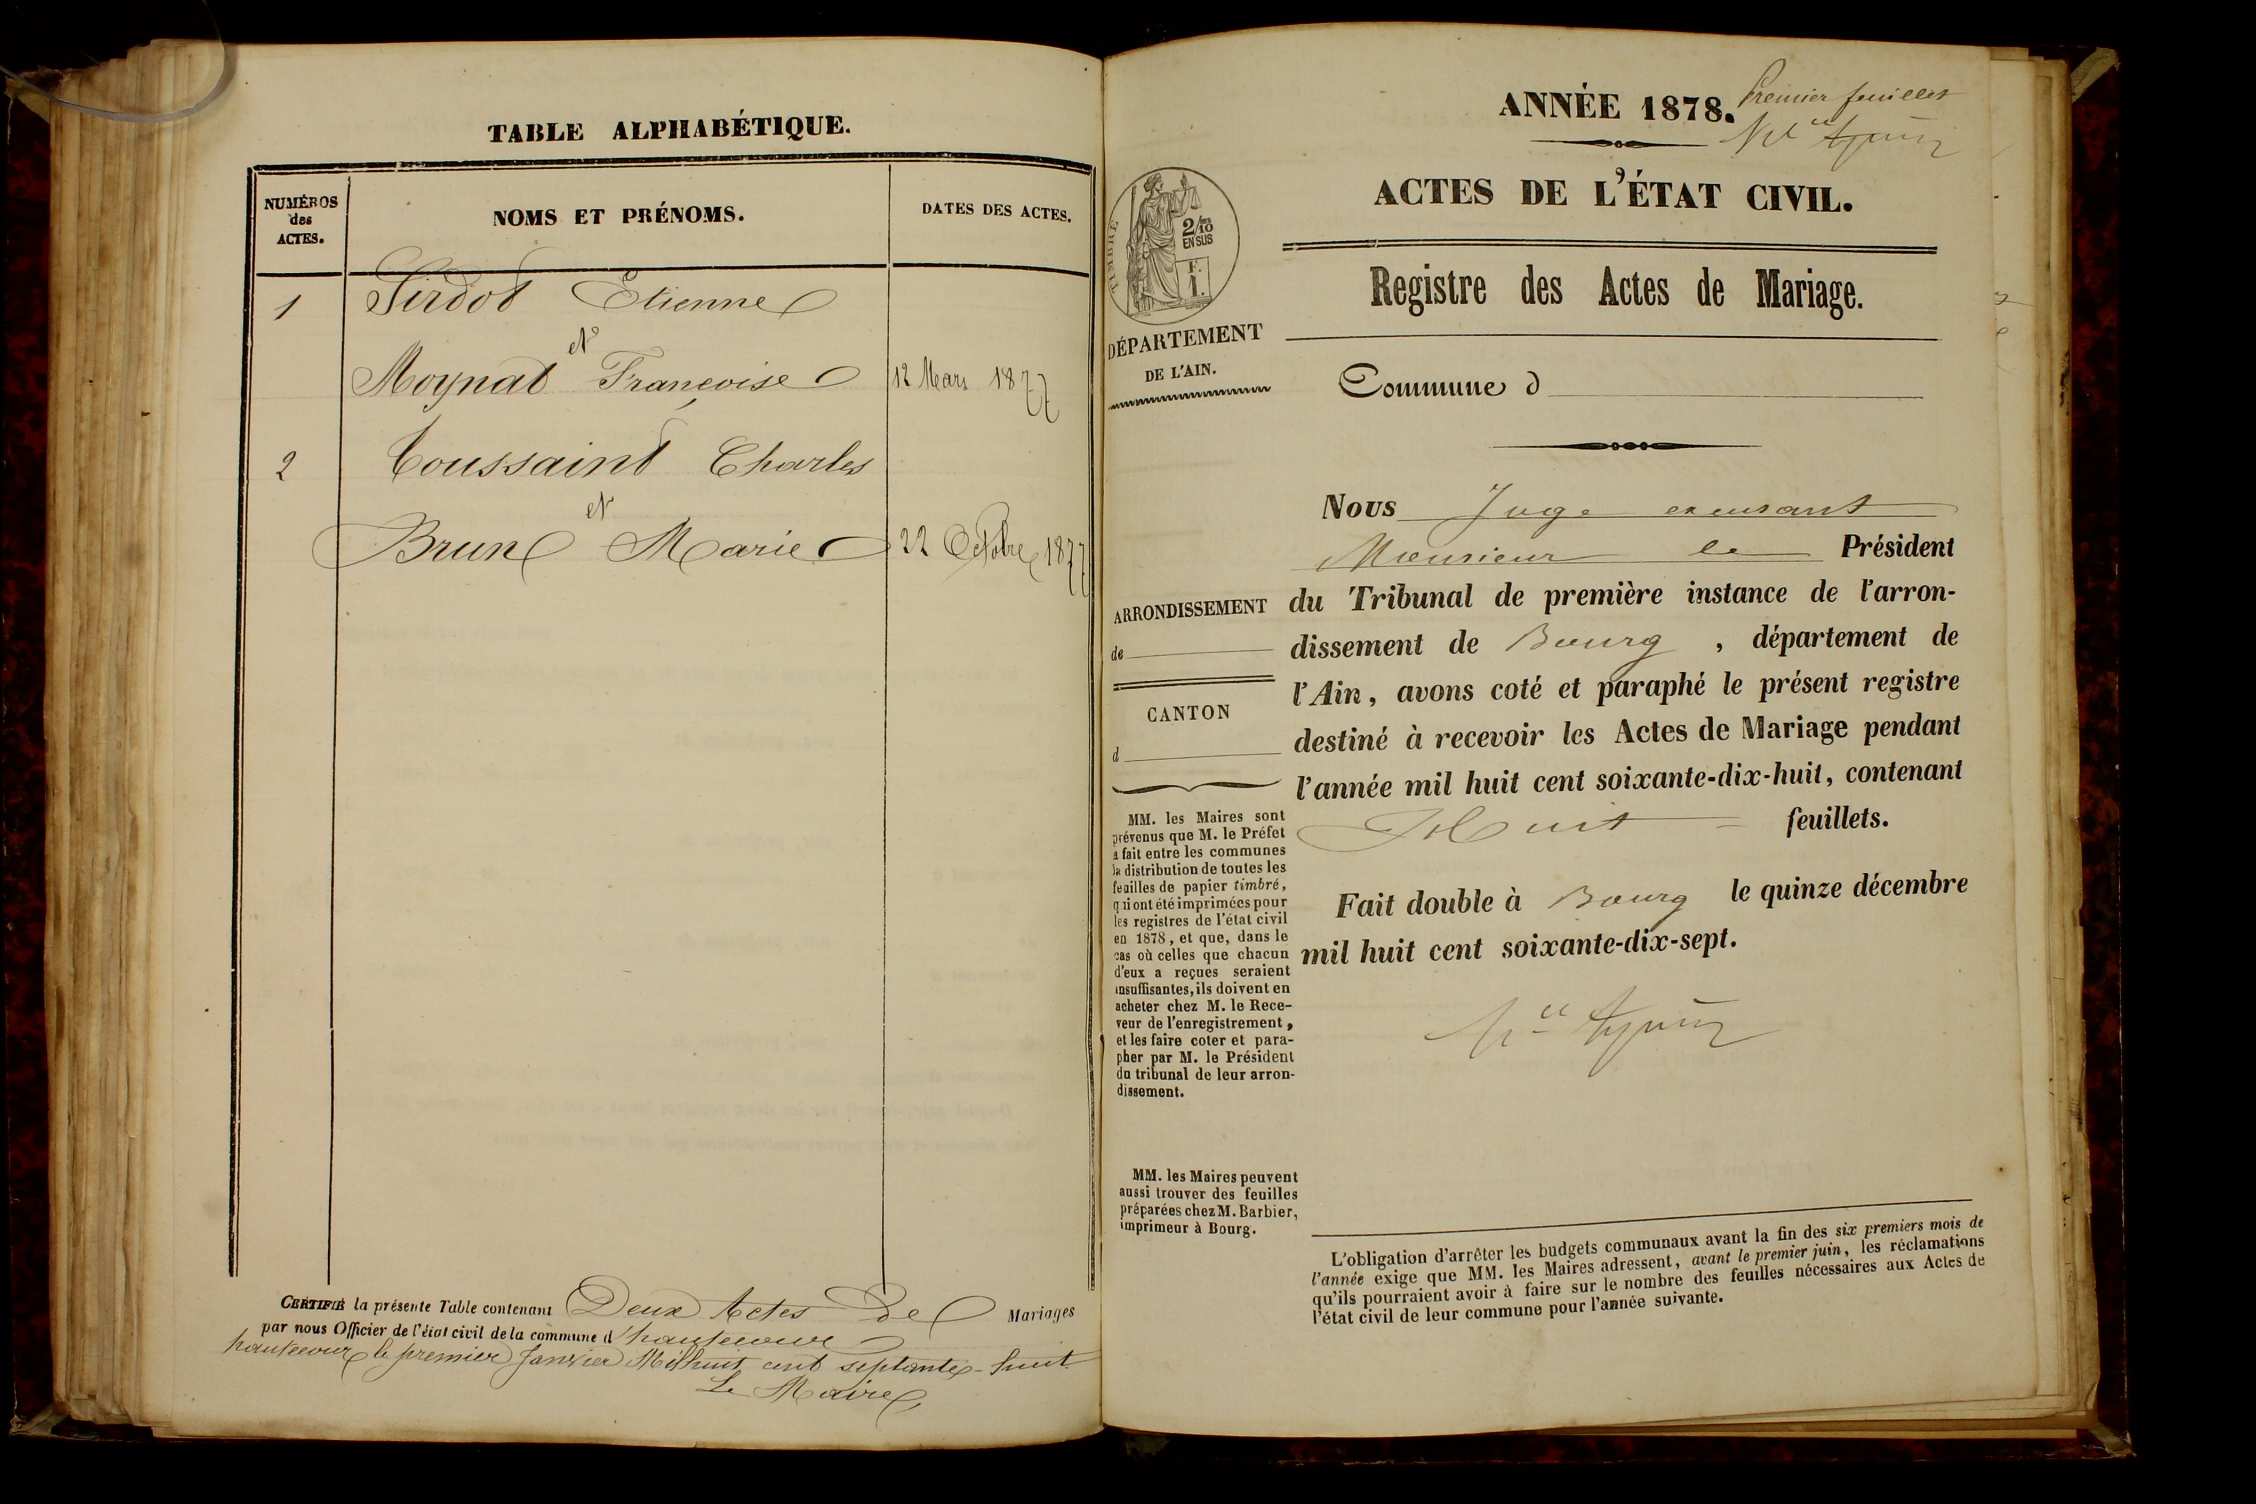 TABLE ALPHABÉTIQUE.
NUMÉROS
des
ACTES.
NOMS ET PRÉNOMS.
DATES DES ACTES.
1 Sirdot Etienne
et
Moynat Françoise 12 Mars 1877
2 Toussaint Charles
et
Brun Marie 22 Octobre 1877
CERTIFIÉ la présente Table contenant Deux Actes De Mariages
par nous Officier de l'état civil de la commune d'hautecour
hautecour le premier Janvier Mil huit cent septante-huit
Le Maire
ANNÉE 1878.
Premier feuillet
ACTES DE L'ÉTAT CIVIL.
TIMBRE
2/10
EN SUS
F.
1.
Registre des Actes de Mariage.
DÉPARTEMENT
DE L'AIN.
Commune d
Nous Juge
Monsieur le Président
du Tribunal de première instance de l'arron-
dissement de Bourg, département de
l'Ain, avons coté et paraphé le présent registre
destiné à recevoir les Actes de Mariage pendant
l'année mil huit cent soixante-dix-huit, contenant
Huit feuillets.
Fait double à Bourg le quinze décembre
mil huit cent soixante-dix-sept.
ARRONDISSEMENT
de
CANTON
d
MM. les Maires sont
prévenus que M. le Préfet
a fait entre les communes
la distribution de toutes les
feuilles de papier timbré,
qui ont été imprimées pour
les registres de l'état civil
en 1878, et que, dans le
cas où celles que chacun
d'eux a reçues seraient
insuffisantes, ils doivent en
acheter chez M. le Rece-
veur de l'enregistrement,
et les faire coter et para-
pher par M. le Président
du tribunal de leur arron-
dissement.
MM. les Maires peuvent
aussi trouver des feuilles
préparées chez M. Barbier,
imprimeur à Bourg.
L'obligation d'arrêter les budgets communaux avant la fin des six premiers mois de
l'année exige que MM. les Maires adressent, avant le premier juin, les réclamations
qu'ils pourraient avoir à faire sur le nombre des feuilles nécessaires aux Actes de
l'état civil de leur commune pour l'année suivante.